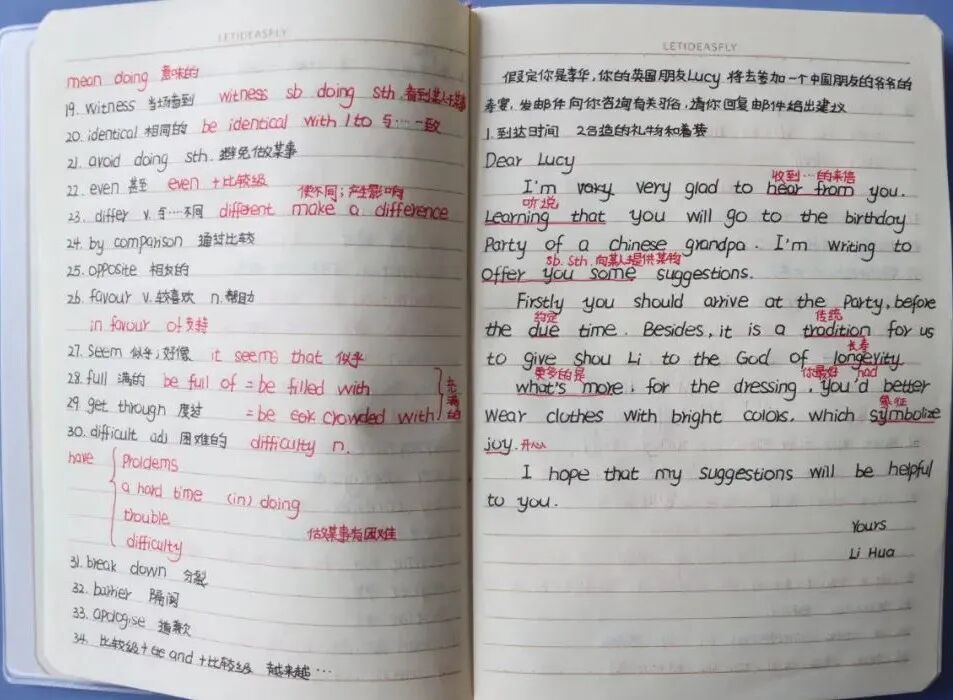 LETIDEASFLY
mean doing 意味的
19. witness 当场看到 witness sb doing sth. 看到某人干某事
20. identical 相同的 be identical with / to 与…一致
21. avoid doing sth. 避免做某事
22. even 甚至 even + 比较级
使不同；产生影响
23. differ v. 与…不同 different make a difference
24. by comparison 通过比较
25. opposite 相反的
26. favour v. 较喜欢 n. 帮助
in favour of 支持
27. Seem 似乎；好像 it seems that 似乎
28. full 满的 be full of = be filled with
29. get through 度过 = be crowded with
充满的
30. difficult adj 困难的 difficulty n.
have
Proldems
a hard time (in) doing
trouble
difficulty 做某事有困难
31. break down 分裂
32. barrier 隔阂
33. apologise 道歉
34. 比较级 + and + 比较级 越来越…
LETIDEASFLY
假定你是李华，你的英国朋友Lucy 将去参加一个中国朋友的爷爷的
寿宴，发邮件向你咨询有关习俗，请你回复邮件给出建议
1. 到达时间 2合适的礼物和着装
Dear Lucy
收到…的来信
I'm very glad to hear from you.
听说
Learning that you will go to the birthday
Party of a chinese grandpa. I'm writing to
sb. Sth. 向某人提供某物
offer you some suggestions.
Firstly you should arrive at the Party, before
约定 传统
the due time. Besides, it is a tradition for us
长寿
to give shou Li to the God of longevity
更多的是 你最好 had
what's more, for the dressing, you'd better
象征
wear clothes with bright colors, which symbolize
joy. 开心
I hope that my suggestions will be helpful
to you.
Yours
Li Hua